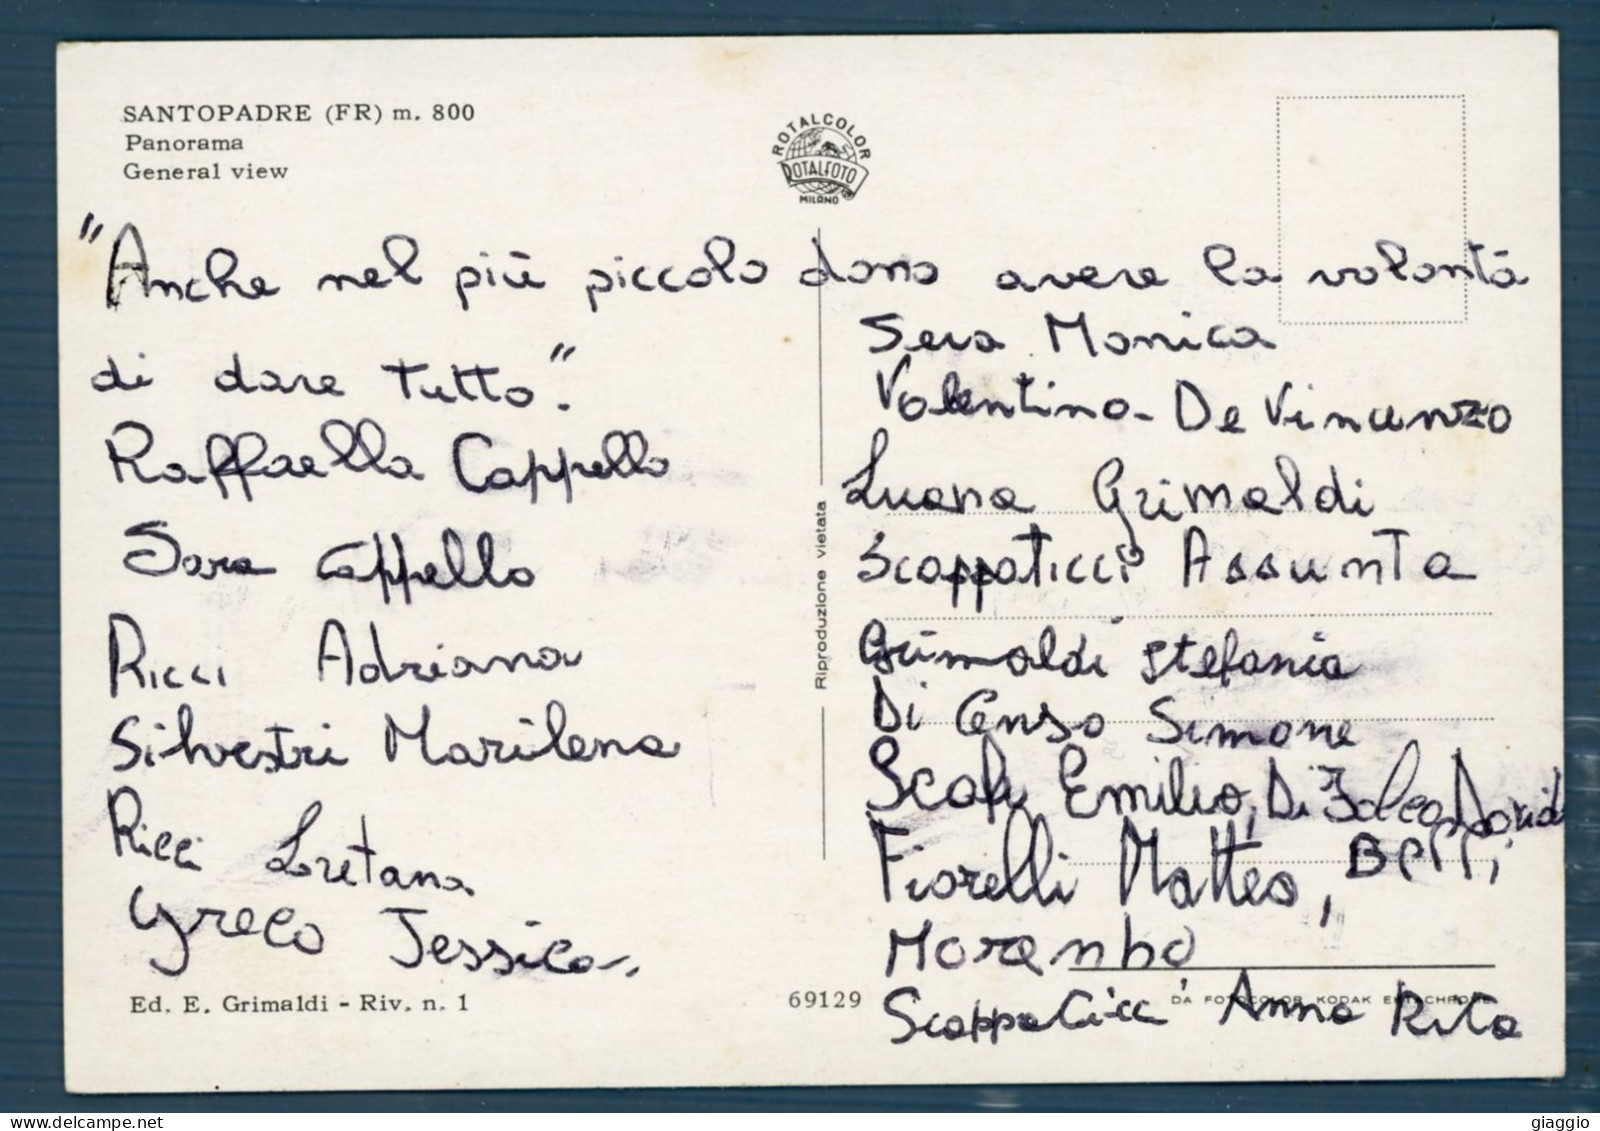 SANTOPADRE (FR) m. 800
Panorama
General view
ROTALCOLOR
ROTALFOTO
MILANO
"Anche nel più piccolo dono avere la volontà
di dare tutto".
Raffaella Cappello
Sara Cappello
Ricci Adriana
Silvestri Marilena
Ricci Loretana
Greco Jessica
Sera Monica
Valentina De Vincenzo
Luana Grimaldi
Scappaticci Assunta
Grimaldi Stefania
Di Censo Simone
Emilio, Di Folco David
Fiorelli Matteo,
Scappaticci Anna Rita
Riproduzione vietata
Ed. E. Grimaldi - Riv. n. 1
69129
DA FOTOCOLOR KODAK EKTACHROME
giaggio